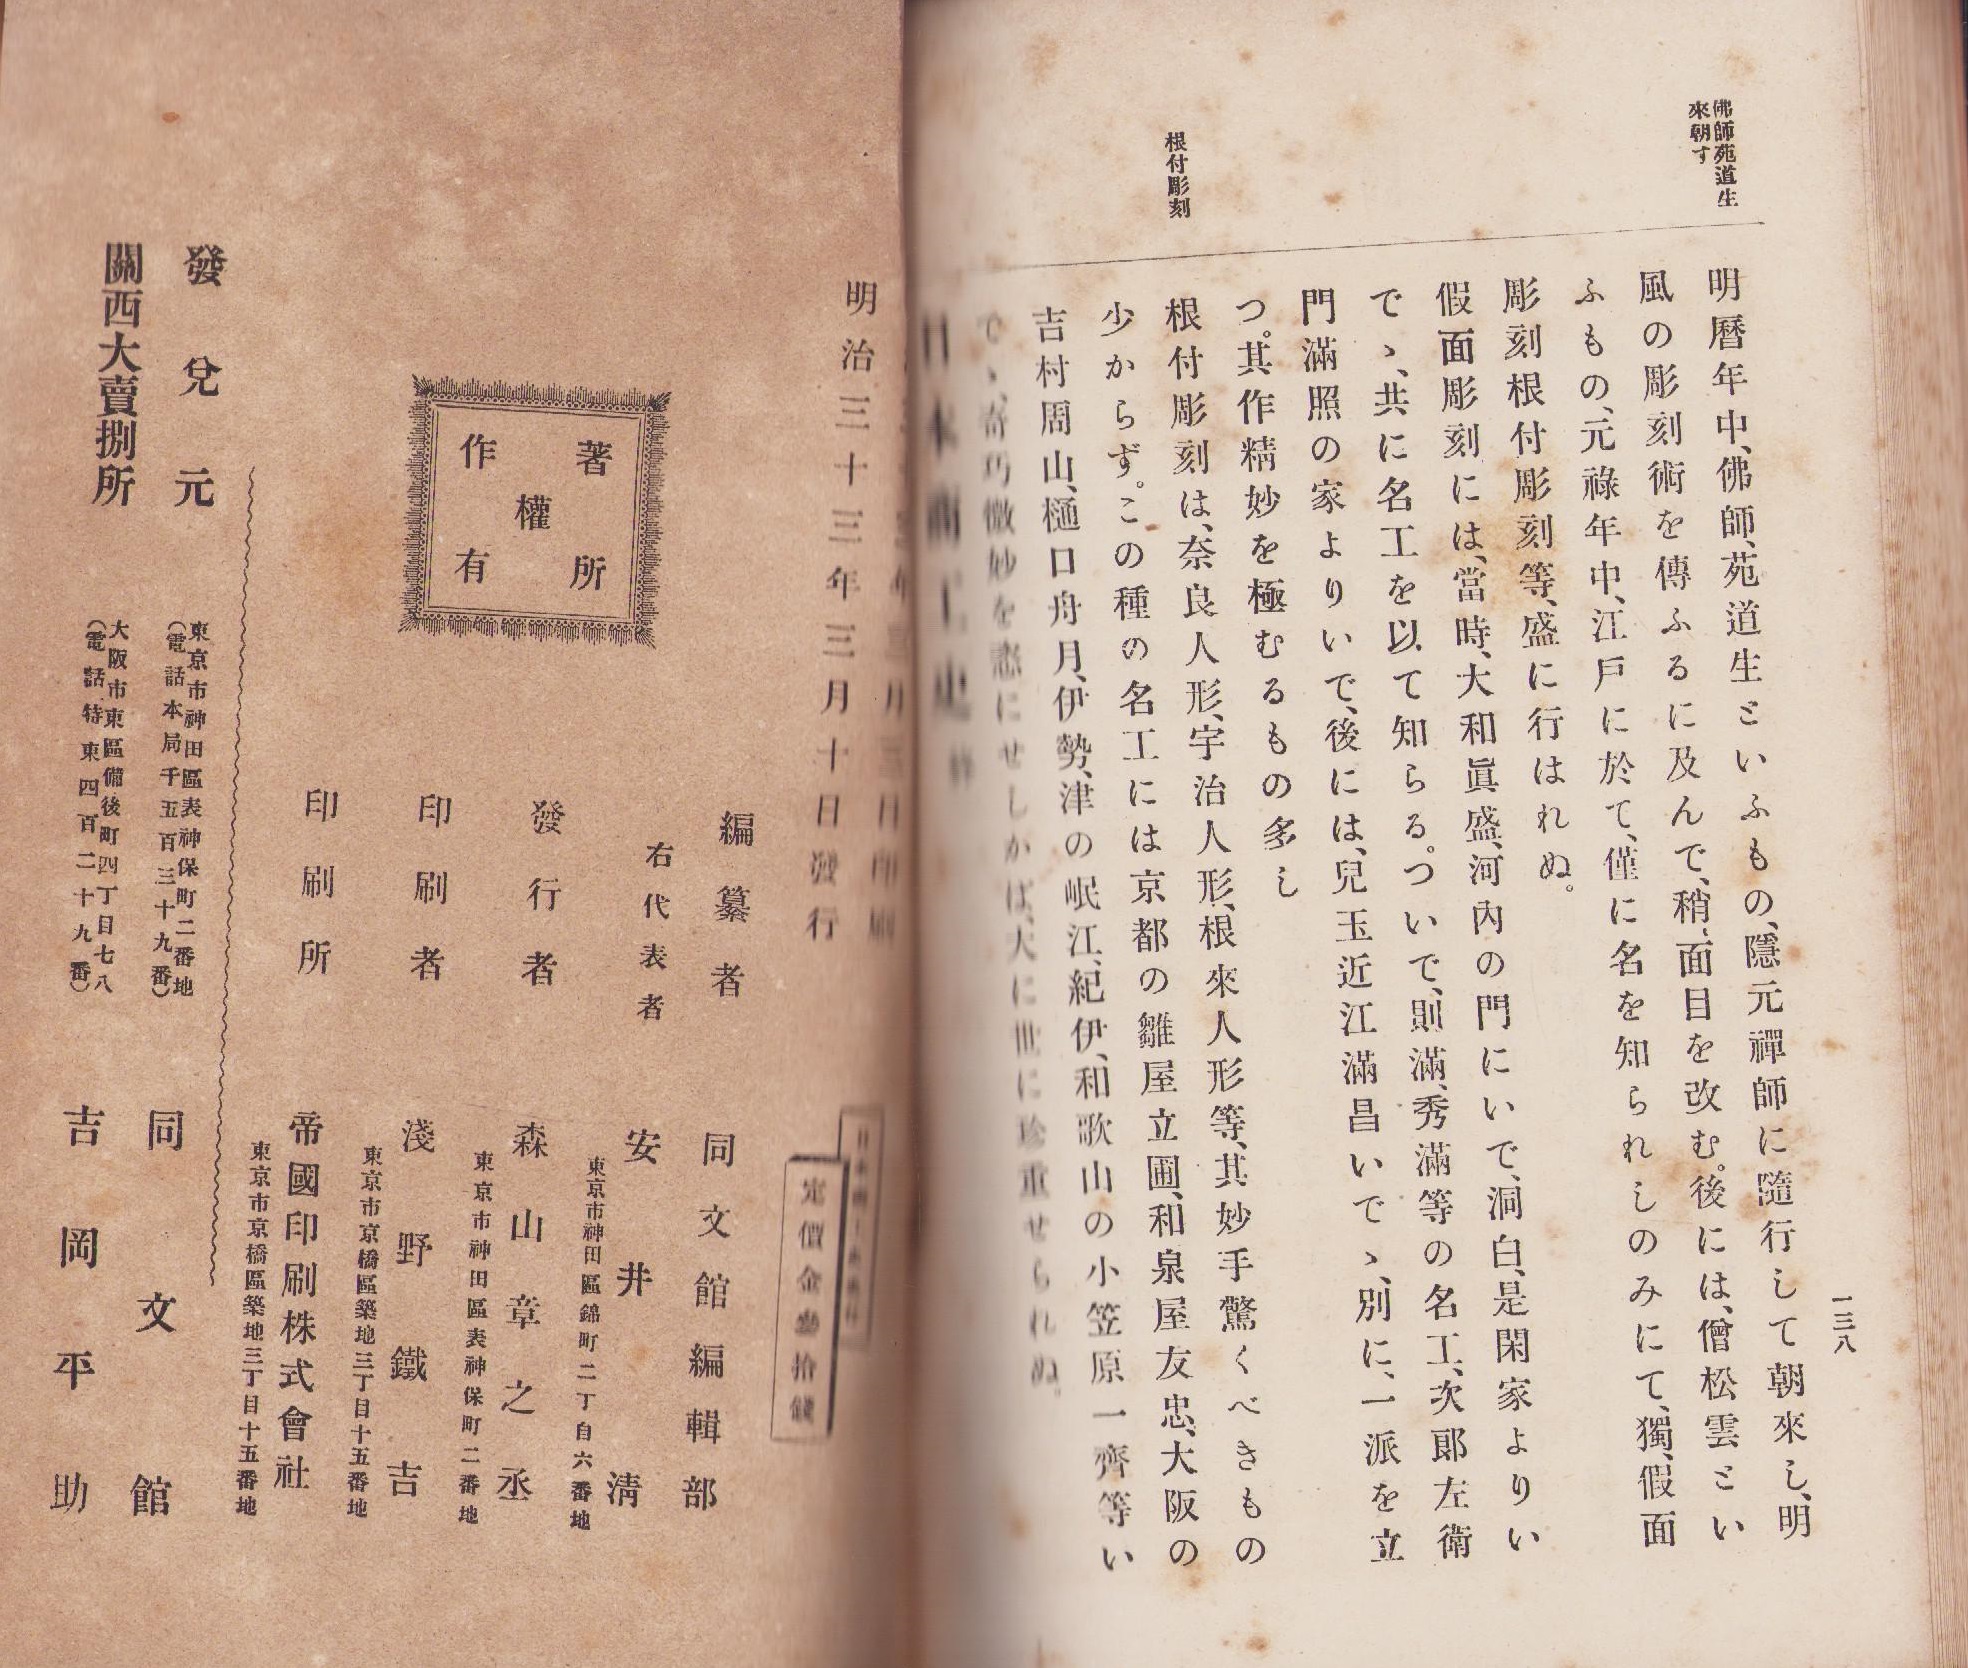 佛師苑道生
來朝す
根付彫刻
一三八
明曆年中、佛師、苑道生といふもの、隱元禪師に隨行して朝來し、明
風の彫刻術を傳ふるに及んで、稍、面目を改む。後には、僧松雲とい
ふもの、元祿年中、江戸に於て、僅に名を知られしのみにて、獨、假面
彫刻根付彫刻等、盛に行はれぬ。
假面彫刻には、當時、大和眞盛、河內の門にいで、洞白、是閑家よりい
でゝ、共に名工を以て知らる。ついで、則滿、秀滿等の名工、次郞左衛
門滿照の家よりいで、後には、兒玉近江滿昌いでゝ、別に、一派を立
つ。其作精妙を極むるもの多し
根付彫刻は、奈良人形、宇治人形、根來人形等、其妙手驚くべきもの
少からず。この種の名工には京都の雛屋立圃、和泉屋友忠、大阪の
吉村周山、樋口舟月、伊勢、津の岷江、紀伊、和歌山の小笠原一齊等い
でゝ、奇巧微妙を恣にせしかば、大に世に珍重せられぬ。
日本商工史 終
明治三十三年三月十日發行
定價金參拾錢
著作權所有
編纂者 同文館編輯部
右代表者 安井淸
東京市神田區錦町二丁目六番地
發行者 森山章之丞
東京市神田區表神保町二番地
印刷者 淺野鐵吉
東京市京橋區築地三丁目十五番地
印刷所 帝國印刷株式會社
東京市京橋區築地三丁目十五番地
發兌元 東京市神田區表神保町二番地
(電話本局千五百三十九番) 同文館
關西大賣捌所 大阪市東區備後町四丁目七八
(電話特東四百二十九番) 吉岡平助